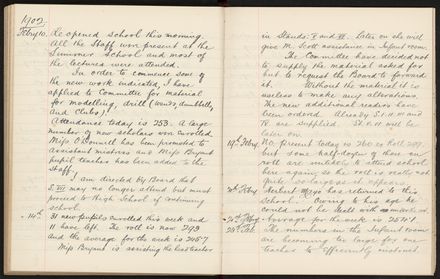 1902
Feby 10. Re opened school this morning.
All the Staff were present at the
Summer School and most of
the lectures were attended.
In order to commence some of
the new work indicated, I have
applied to Committee for material
for modelling, drill (wands, dumbbells,
and clubs).
Attendance today is 253. A large
number of new scholars were enrolled.
Miss O'Connell has been promoted to
assistant mistress and Miss Bryant
pupil teacher has been added to the
Staff.
I am directed by Board that
S. VII may no longer attend but must
proceed to High School if continuing
school.
" 14th. 31 new pupils enrolled this week and
11 have left. The roll is now 293
and the average for the week is 245.7
Miss Bryant is assisting the headteacher
in Stands. V and VI. Later on she will
give M. Scott assistance in Infant room.
The Committee have decided not
to supply the material asked for
but to request the Board to forward
it. Without the material it is
useless to make any alterations.
The new additional readers have
been ordered. Already S. I. II. III and
IV. are supplied. St. V. VI will be
later on.
19th Feby No. present today is 260 Roll 297
but some half-dozen of those on
roll are unlikely to attend school
here again, so the roll is really not
quite so large as it appears.
20th Feby Herbert has returned to this
school. Owing to his age he
could not be dealt with
Average for the week is 254.2
24th Feb. The numbers in the Infant room
are becoming too large for one
teacher to efficiently instruct.